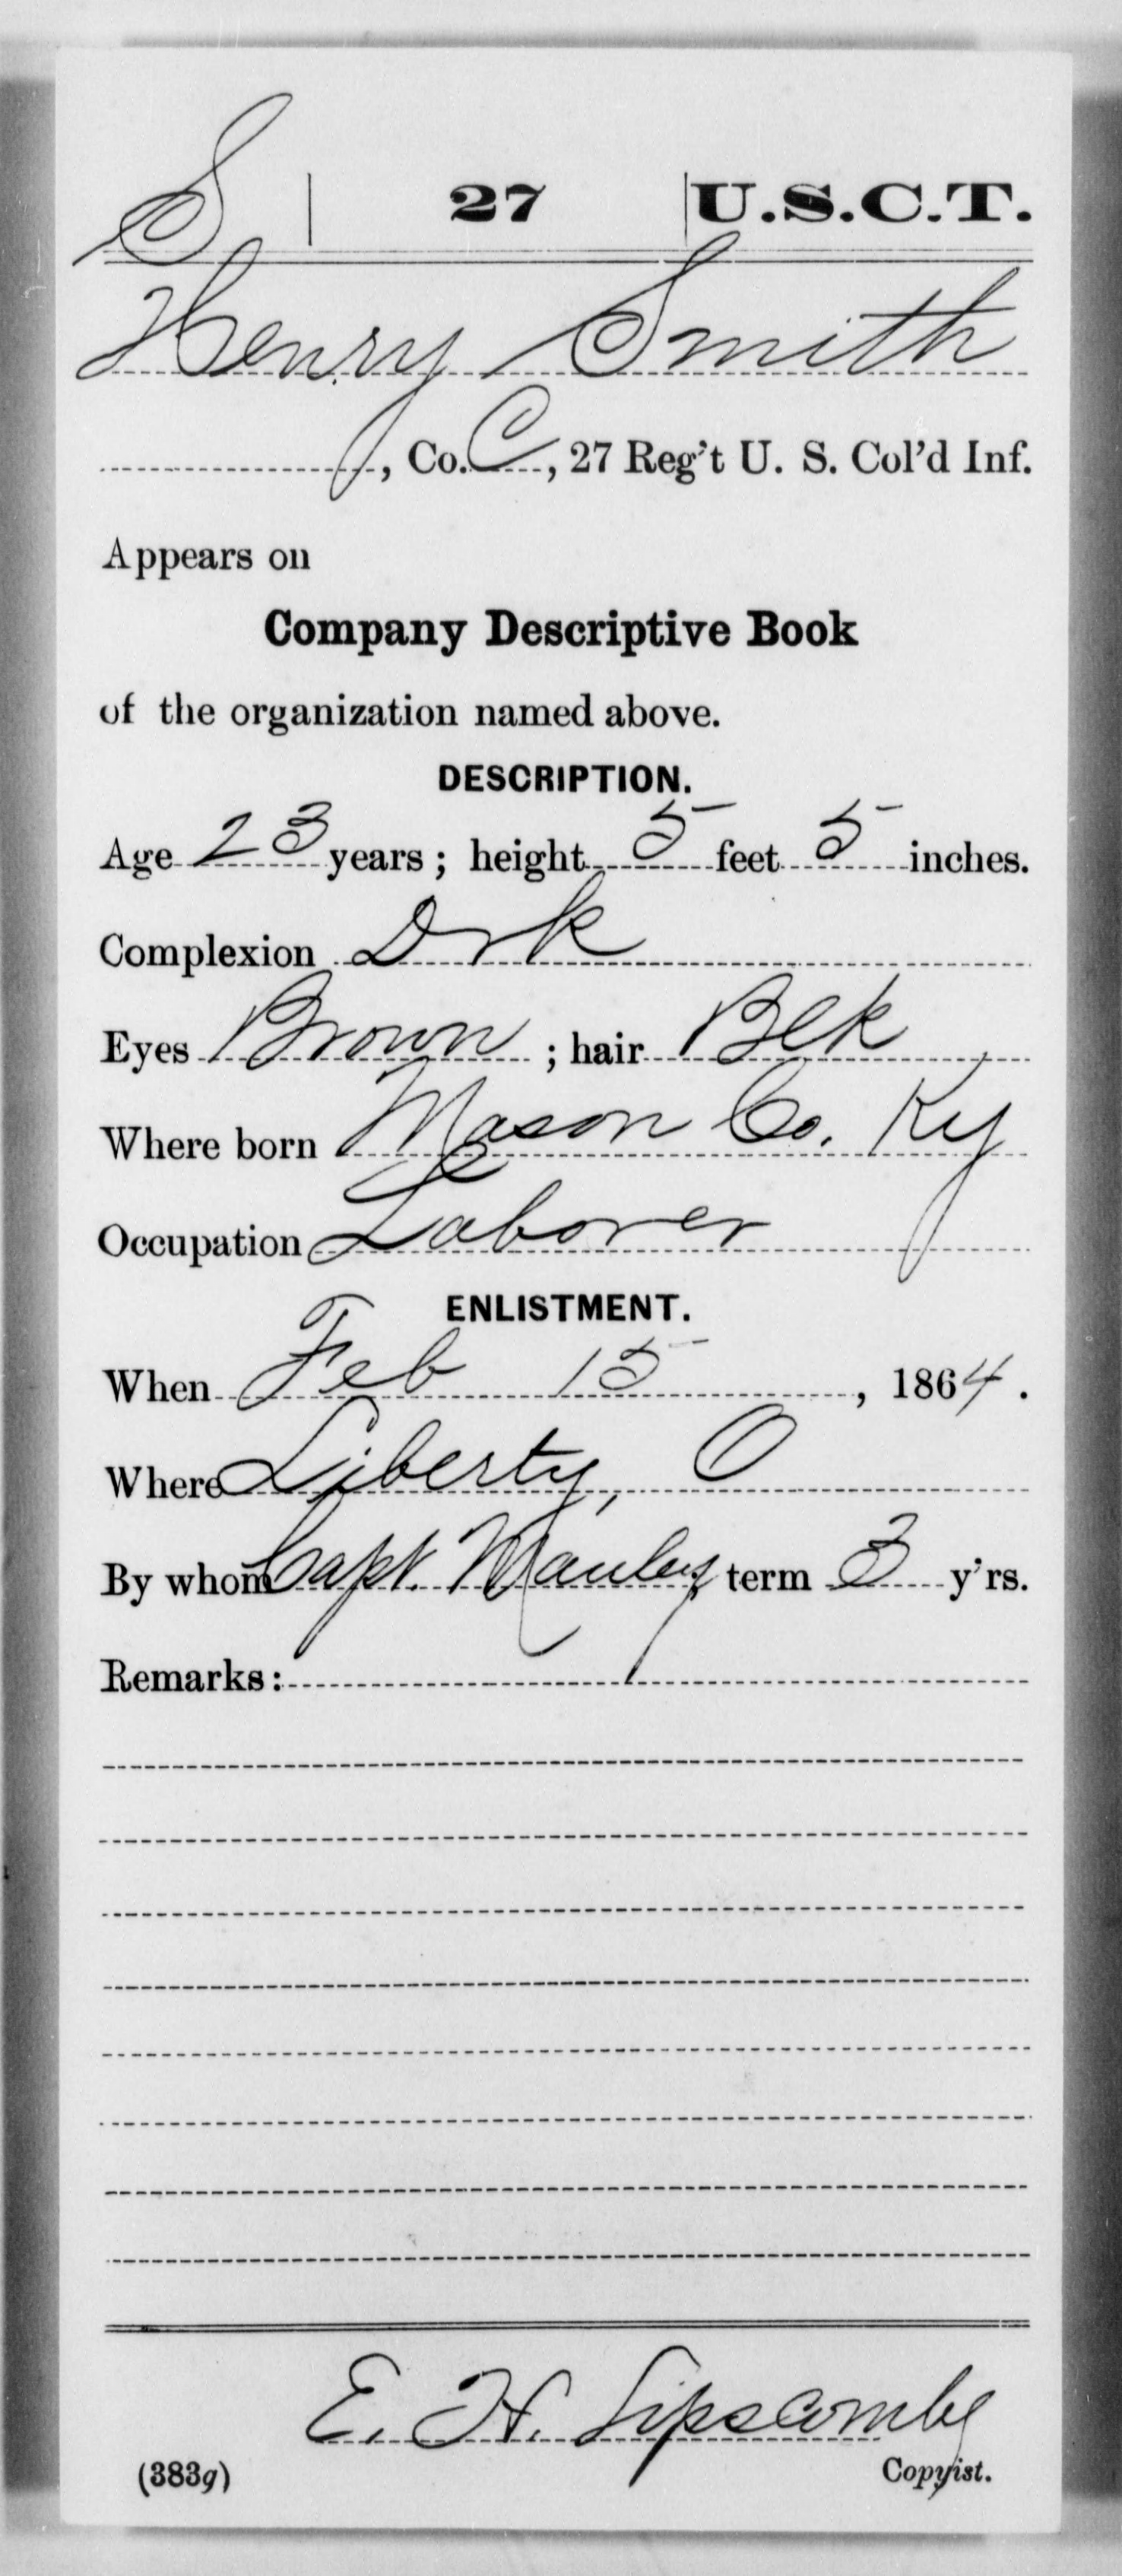 S | 27 | U.S.C.T.
Henry Smith
, Co. C, 27 Reg't U. S. Col'd Inf.
Appears on
Company Descriptive Book
of the organization named above.
DESCRIPTION.
Age 23 years; height 5 feet 5 inches.
Complexion Drk
Eyes Brown; hair Blk
Where born Mason Co. Ky
Occupation Laborer
ENLISTMENT.
When Feb 15, 1864.
Where Liberty, O
By whom Capt. Manley, term 3 y'rs.
Remarks:
E. H. Lipscombe
(383g) Copyist.